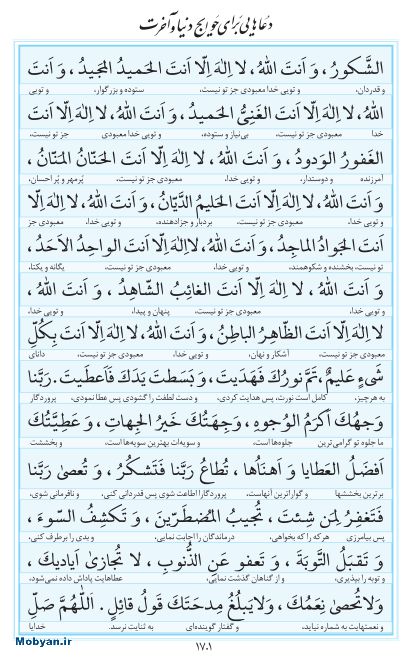 دعاهایی برای حوایج دنیا و آخرت
الشَّكورُ، وَ اَنتَ اللهُ، لا اِلهَ اِلّا اَنتَ الحَميدُ المَجيدُ، وَ اَنتَ
و قدردان، و تویی خدا معبودی جز تو نیست، ستوده و بزرگوار، و تویی
اللهُ، لا اِلهَ اِلّا اَنتَ الغَنِیُّ الحَميدُ، وَ اَنتَ اللهُ، لا اِلهَ اِلّا اَنتَ
خدا معبودی جز تو نیست، بی‌نیاز و ستوده، و تویی خدا معبودی جز تو نیست،
الغَفورُ الوَدودُ، وَ اَنتَ اللهُ، لا اِلهَ اِلّا اَنتَ الحَنّانُ المَنّانُ،
آمرزنده و دوستدار، و تویی خدا، معبودی جز تو نیست، پُرمهر و پُر احسان،
وَ اَنتَ اللهُ، لا اِلهَ اِلّا اَنتَ الحَليمُ الدَّيّانُ، وَ اَنتَ اللهُ، لا اِلهَ اِلّا
و تویی خدا، معبودی جز تو نیست، بردبار و جزادهنده، و تویی خدا، معبودی جز
اَنتَ الجَوادُ الماجِدُ، وَ اَنتَ اللهُ، لااِلهَ اِلّا اَنتَ الواحِدُ الاَحَدُ،
تو نیست، بخشنده و شکوهمند، و تویی خدا، معبودی جز تو نیست، یگانه و یکتا،
وَ اَنتَ اللهُ، لا اِلهَ اِلّا اَنتَ الغائِبُ الشّاهِدُ، وَ اَنتَ اللهُ،
و تویی خدا، معبودی جز تو نیست، پنهان و پیدا، و تویی خدا،
لا اِلهَ اِلّا اَنتَ الظّاهِرُ الباطِنُ، وَ اَنتَ اللهُ، لا اِلهَ اِلّا اَنتَ بِكُلِّ
معبودی جز تو نیست، آشکار و نهان، و تویی خدا، معبودی جز تو نیست، دانای
شَیءٍ عَليمٌ، تَمَّ نورُكَ فَهَدَيتَ، وَ بَسَطتَ يَدَكَ فَاَعطَيتَ. رَبَّنا
به هرچیز، کامل است نورت، پس هدایت کردی، و دست لطفت را گشودی پس عطا نمودی، پروردگار
وَجهُكَ اَكرَمُ الوُجوهِ، وَ جِهَتُكَ خَيرُ الجِهاتِ، وَ عَطِيَّتُكَ
ما جلوه تو گرامی‌ترین جلوه‌ها است، و سویه‌ات بهترین سویه‌ها است، و بخششت
اَفضَلُ العَطايا وَ اَهنَأُها، تُطاعُ رَبَّنا فَتَشكُرُ، وَ تُعصیٰ رَبَّنا
برترین بخششها و گواراترین آنهاست، پروردگارا اطاعت شوی پس قدردانی کنی، و نافرمانی شوی،
فَتَغفِرُ لِمَن شِئتَ، تُجيبُ المُضطَرّينَ، وَ تَكشِفُ السّوءَ،
پس بیامرزی هرکه را که بخواهی، درماندگان را اجابت نمایی، و بدی را برطرف کنی،
وَ تَقبَلُ التَّوبَةَ، وَ تَعفو عَنِ الذُّنوبِ، لا تُجازیٰ اَياديكَ،
و توبه را بپذیری، و از گناهان گذشت نمایی، عطاهایت پاداش داده نمی‌شود،
وَلا تُحصیٰ نِعَمُكَ، وَ لا يَبلُغُ مِدحَتَكَ قَولُ قائِلٍ. اَللّهُمَّ صَلِّ
و نعمتهایت به شماره نیاید، و گفتار گوینده‌ای به ثنایت نرسد. خدایا
۱۷۰۱
Mobyan.ir